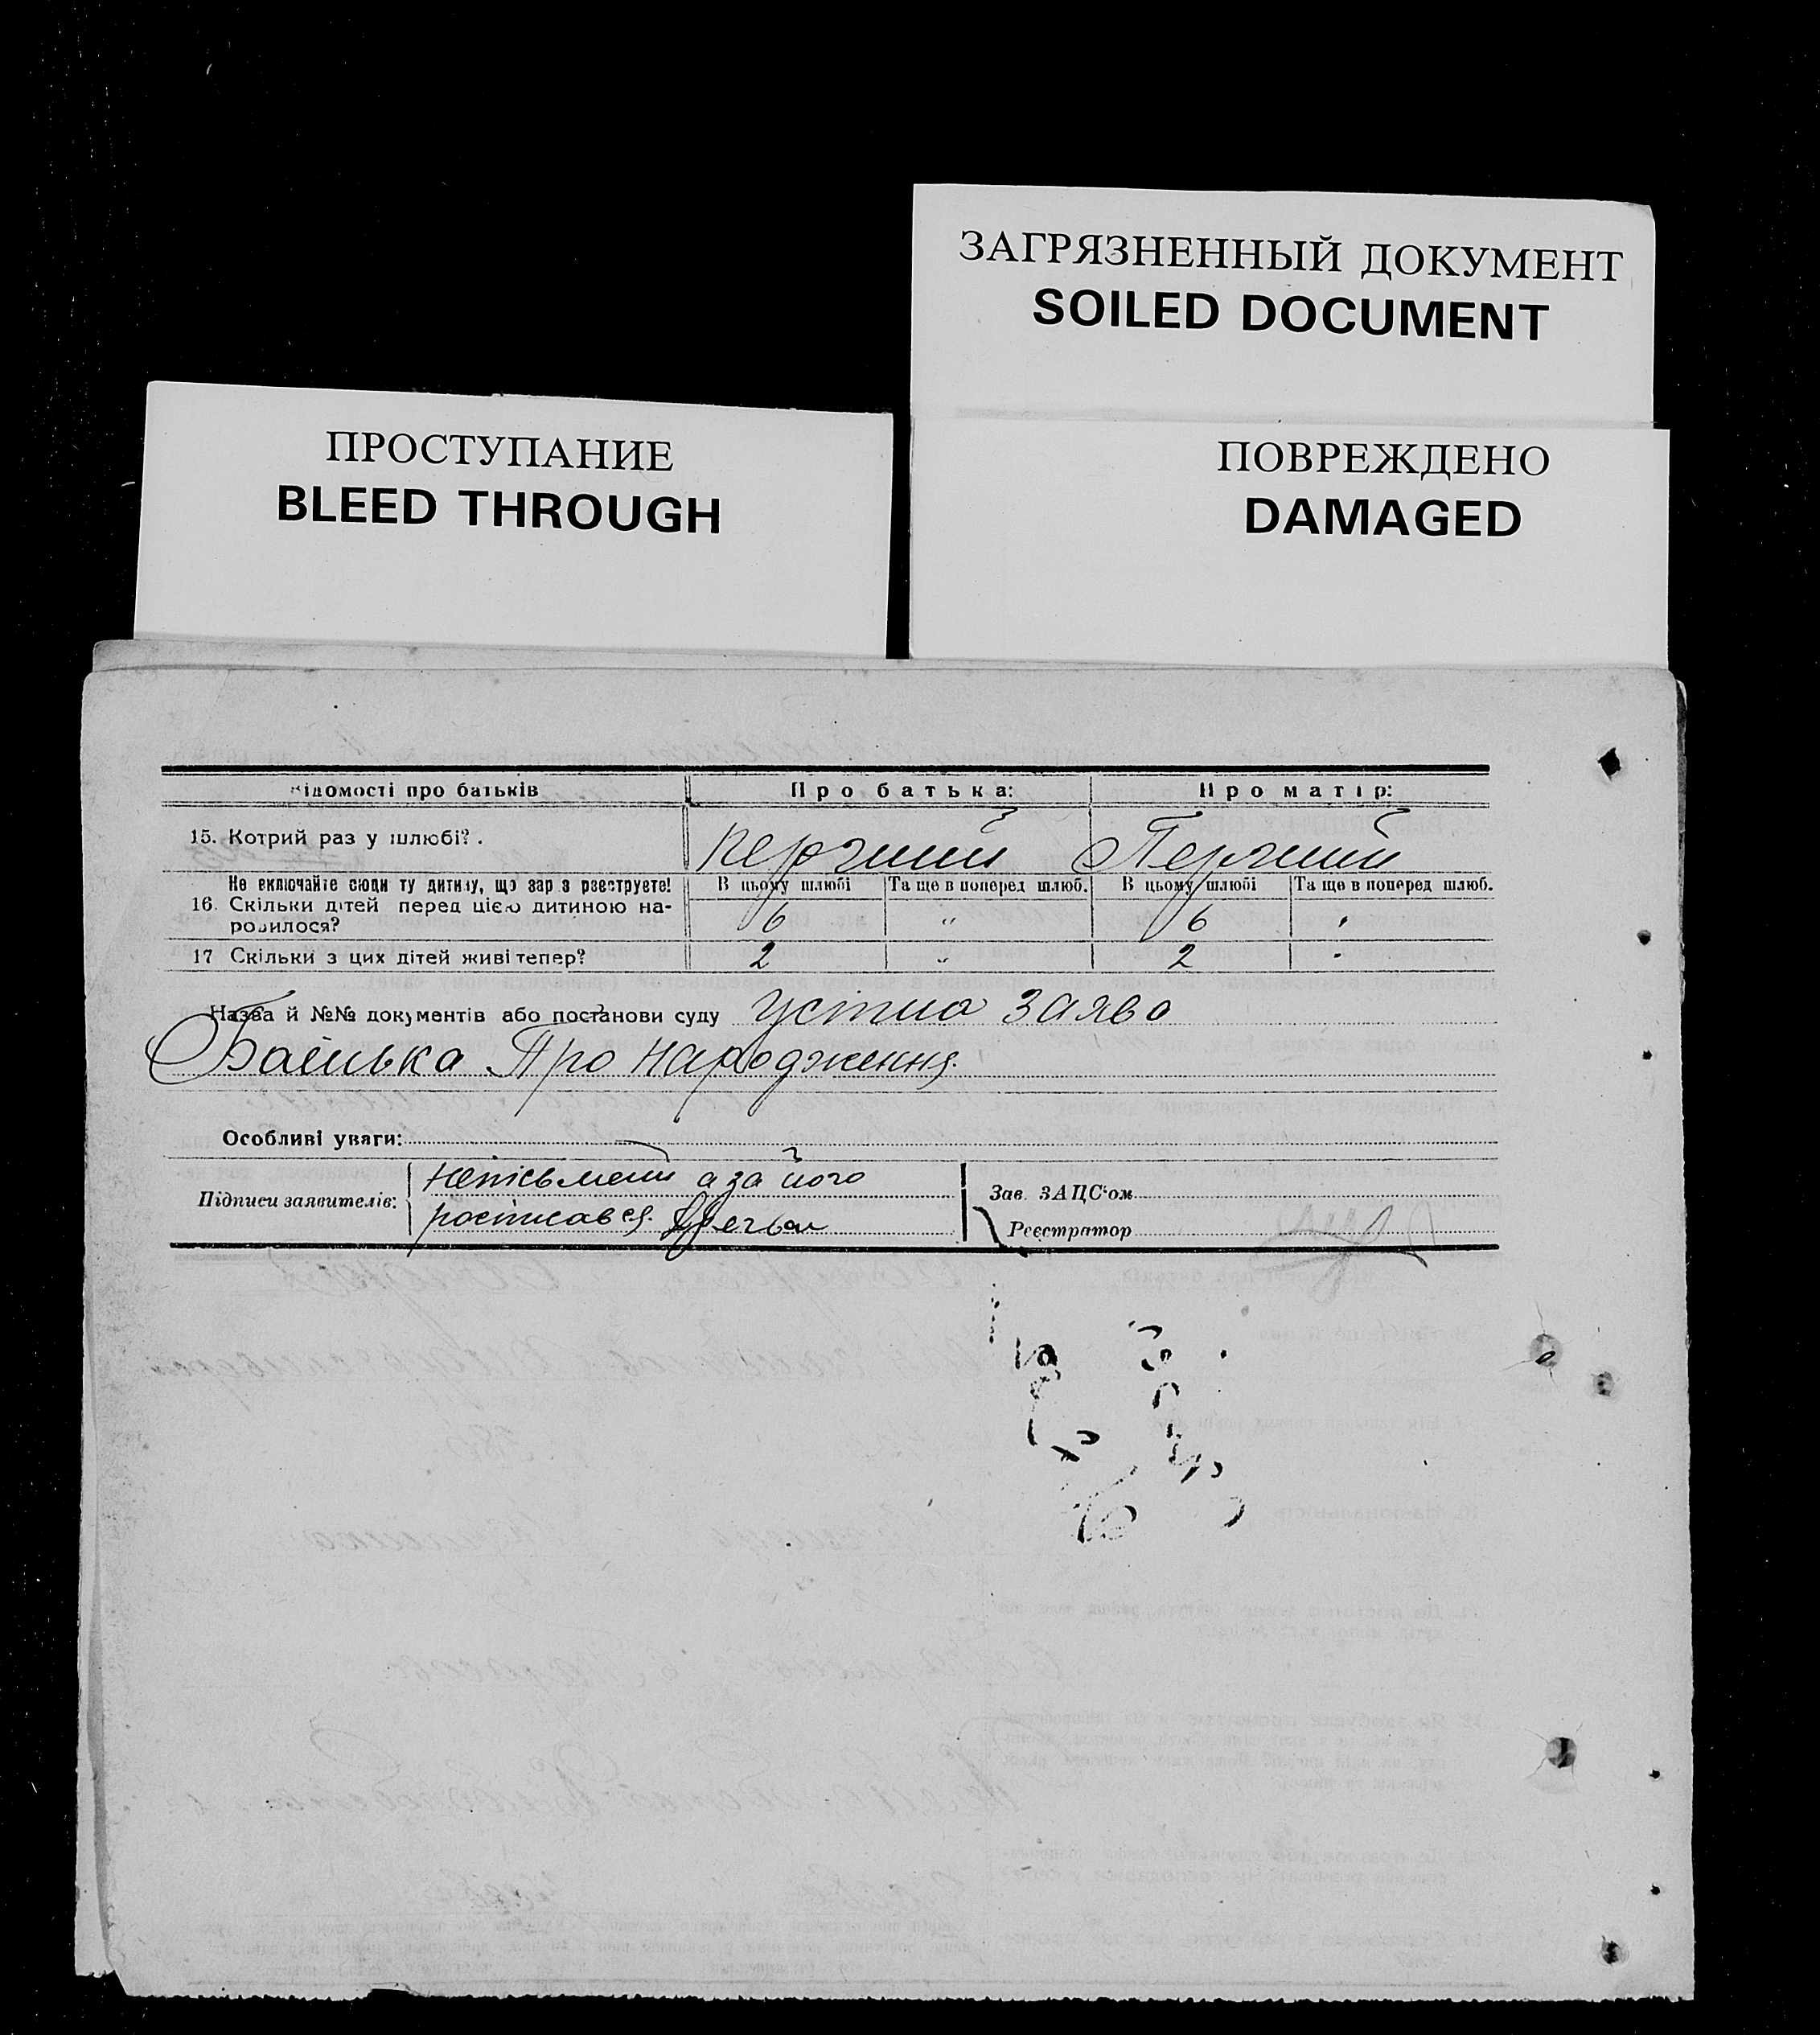 ЗАГРЯЗНЕННЫЙ ДОКУМЕНТ
SOILED DOCUMENT
ПРОСТУПАНИЕ
BLEED THROUGH
ПОВРЕЖДЕНО
DAMAGED
ідомості про батьків Про батька: Про матір:
15. Котрий раз у шлюбі? . Перший Перший
Не включайте сюди ту дитину, що зараз реєструєте! В цьому шлюбі Та ще в поперед шлюб. В цьому шлюбі Та ще в поперед шлюб.
16. Скільки дітей перед цією дитиною на-
родилося? 6 „ 6 „
17 Скільки з цих дітей живі тепер? 2 „ 2 „
Назва й №№ документів або постанови суду Устна заява
Батька Про народження.
Особливі уваги:
Підписи заявителів: неписьмений а за його
росписався.
Зав. ЗАЦС'ом
Реєстратор